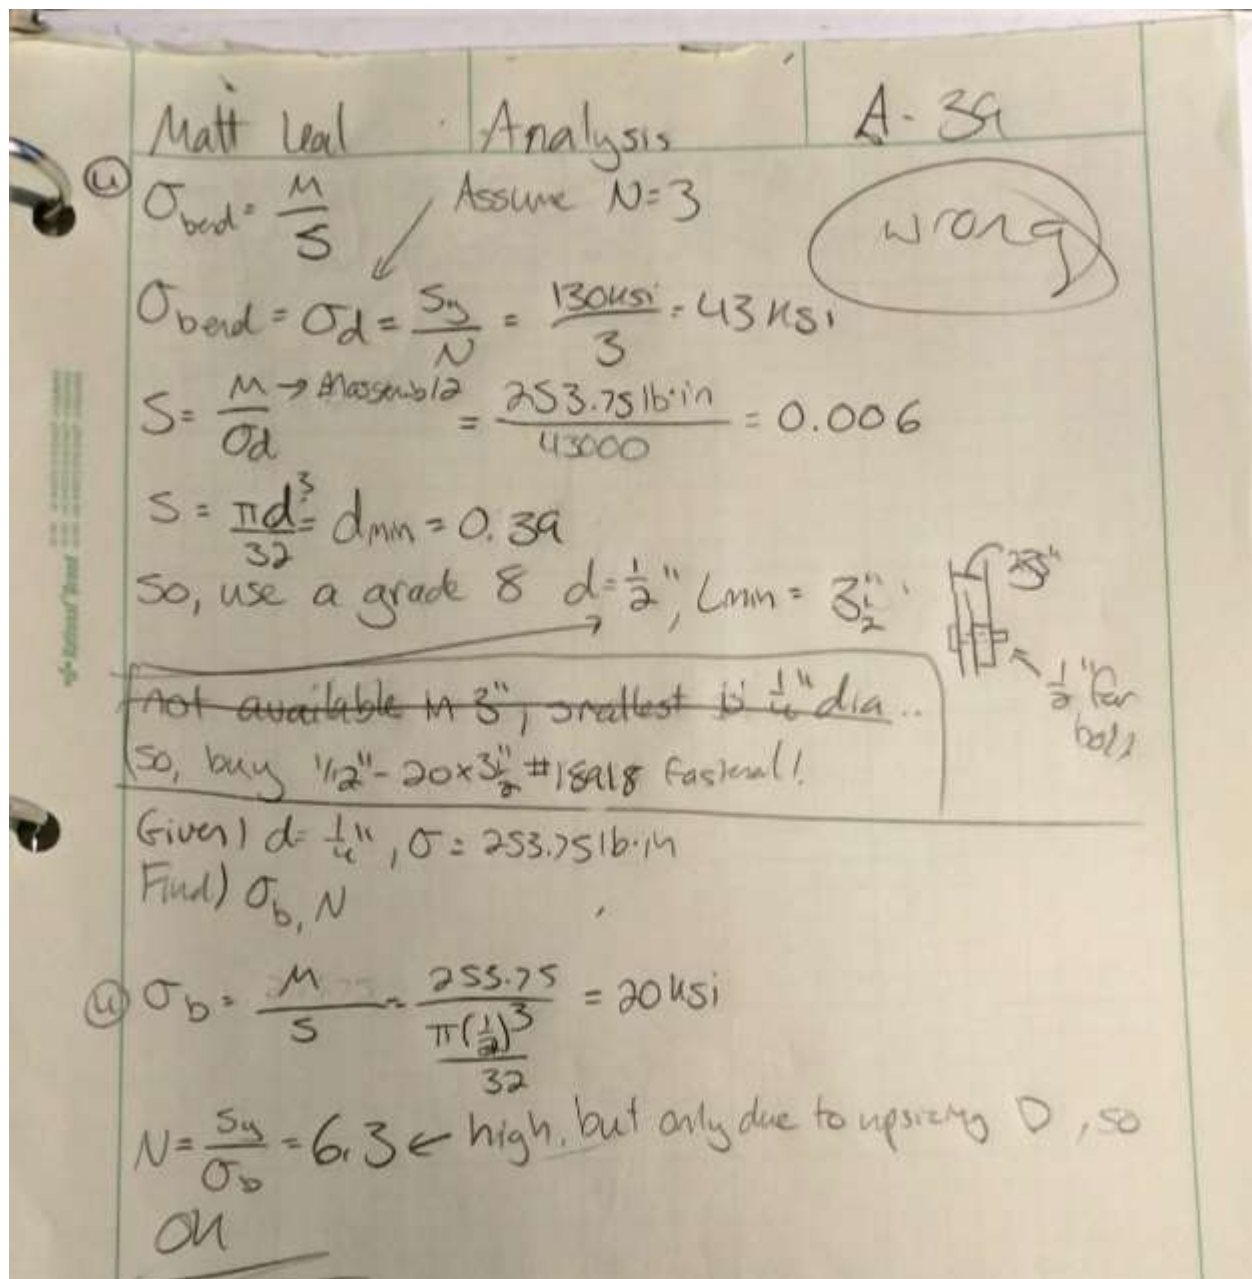 Matt Leal Analysis A-39
④ σbend = M/S Assume N=3
wrong
σbend = σd = Sy/N = 130ksi/3 = 43 ksi
S = M/σd → = 253.75 lb·in/43000 = 0.006
S = πd³/32 = dmin = 0.39
So, use a grade 8 d=1/2", Lmin = 3 1/2"
1/2" for bolt
not available in 3", smallest is 1/4" dia..
so, buy 1/2"-20x3 1/2" #18918 Fastenal!
Given) d= 1/4", σ= 253.75 lb·in
Find) σb, N
④ σb = M/S = 253.75/(π(1/2)³/32) = 20 ksi
N = Sy/σb = 6.3 ← high, but only due to upsizing D, so
OK